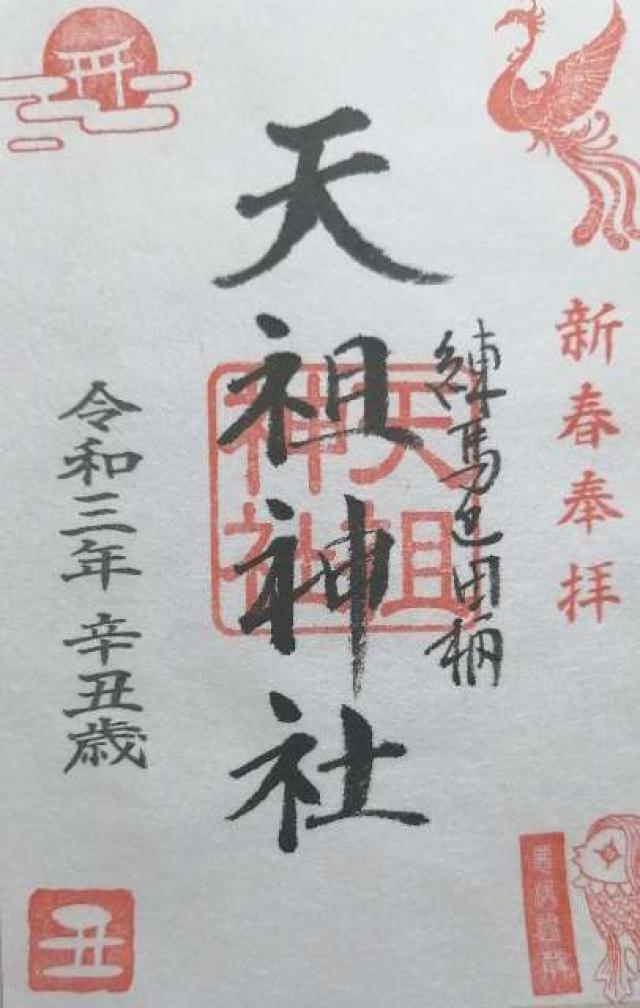 新春奉拝
練馬区田柄
天祖神社
天祖神社
令和三年 辛丑歳
丑